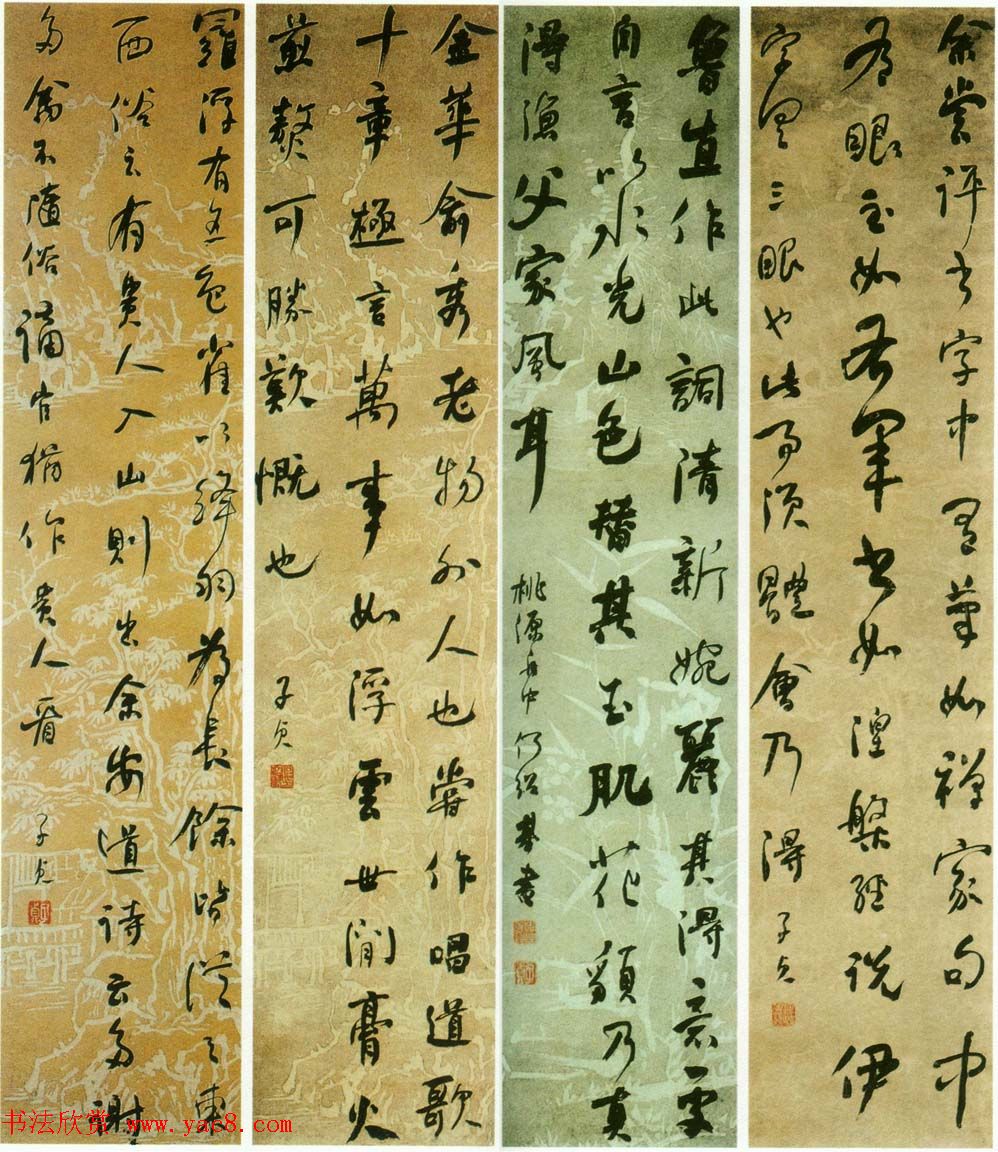 余嘗評書字中有筆如禪家句中
有眼至如右軍書如涅槃經說伊
字具三眼也此事須體會乃得 子貞
魯直作此詞清新婉麗其得意處
自言以水光山色替其玉肌花貌乃真
得漁父家風耳 桃源舟中 何紹基書
金華俞秀老物外人也嘗作唱道歌
十章極言萬事如浮雲世間膏火
煎熬可勝歎慨也 子貞
羅浮有五色雀以絳羽為長餘皆從之東
西俗云有貴人入山則出余安道詩云多謝
多禽不隨俗謫官猶作貴人看 子貞
书法欣赏 www.yac8.com